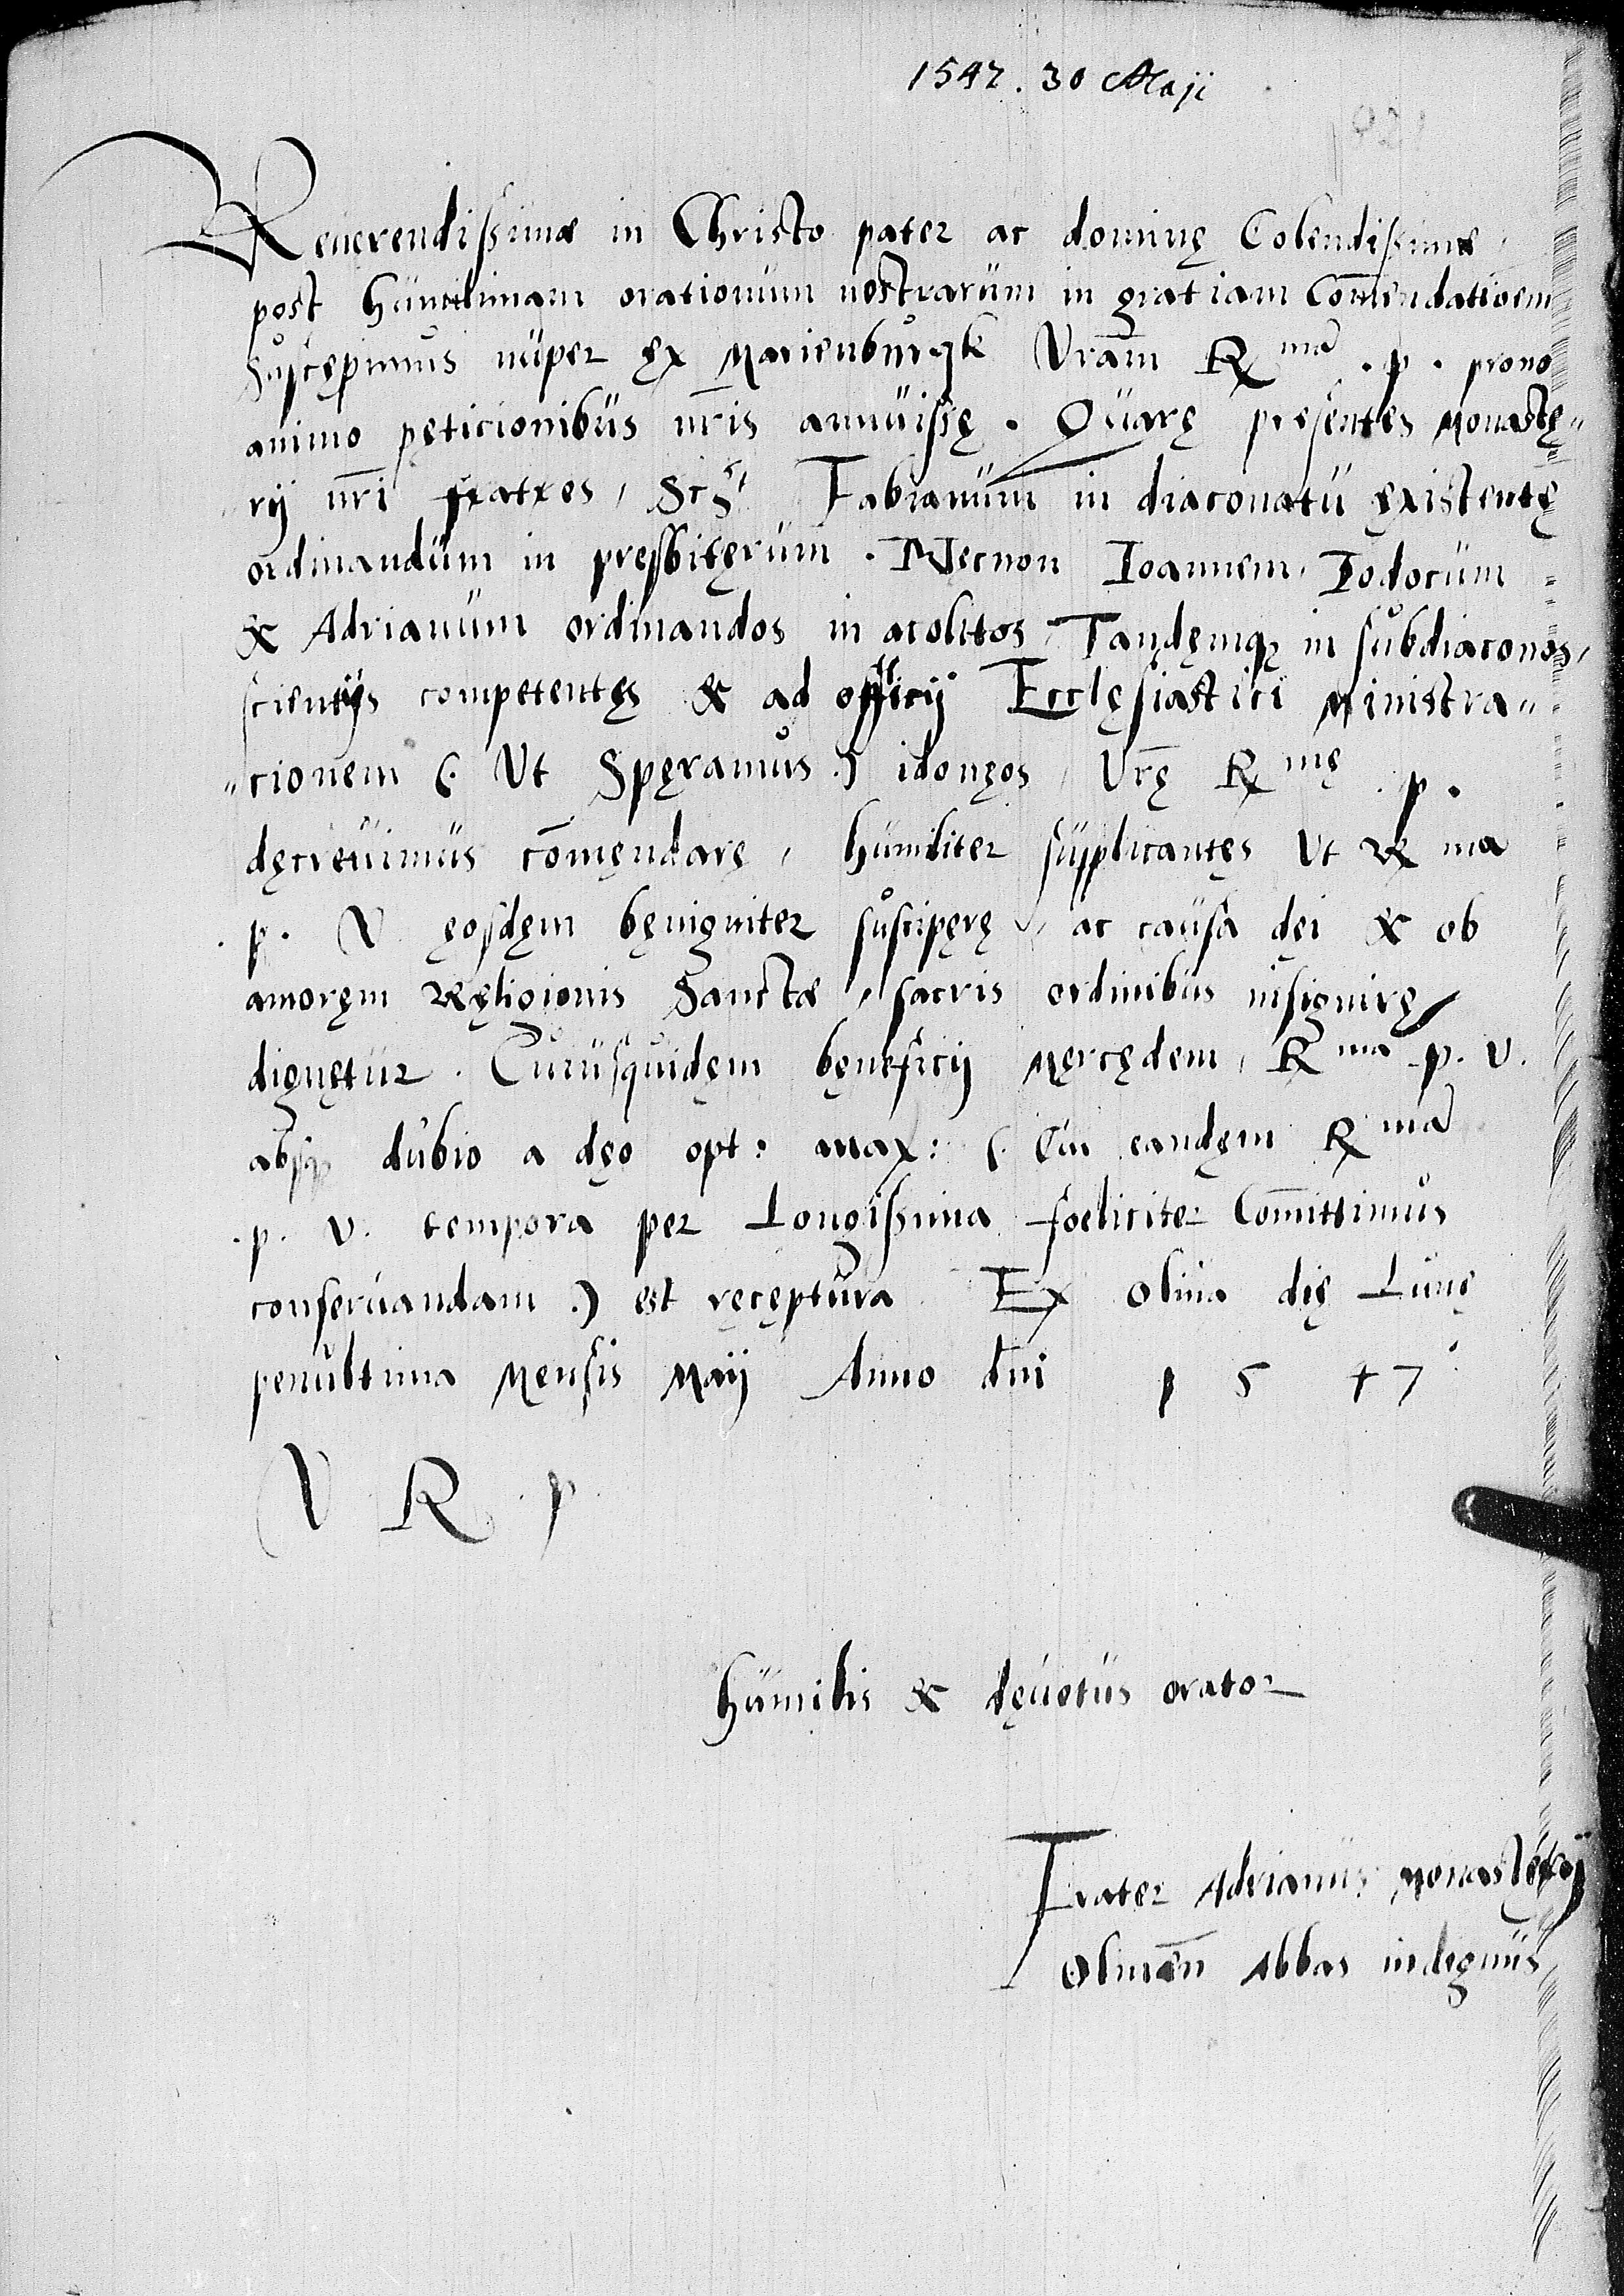 1547. 30 Maji
Reuerendissimæ in Christo pater ac dominę Colendissimæ,
post humillimam orationum nostrarum in gratiam Com̄endatioem
Suscępimus nuper ęx Marienburgk Vram̄ R ma . p . prono
animo pęticionibus nr̄is annuissę . Quarę presentes Monastę„
„rij nr̄i fratres, Scz Fabianum in diaconatu ęxistentę
ordinandum in presbitęrum . Necnon Ioannem, Iodocum
& Adrianum ordinandos in acolitos, Tandęmqꝫ in subdiaconos,
scientijs competentęs & ad officij Ecclęsiastici Ministra„
„cionem (. Vt Spęramus .) idonęos, Vrę̄ R mę . p .
dęcreuimus com̄ęndarę, humiliter supplicantęs Vt R ma
. p . V ęosdęm bęnigniter suscipęrę, ac causa dęi & ob
amoręm Ręligionis Sanctæ, sacris ordinibus insignirę
dignętur . Cuiusquidęm bęnęficij Męrcędem, R ma . p . v .
absqꝫ dubio a dęo opt: max: (. Cui eandęm R ma
. p . v . tempora per Longissima foeliciter Com̄ittimus
conseruandam .) est ręcęptura Ex Oliua dię Lunę
penultima Mensis Maij Anno dn̄i 1 5 4 7
V R . p
humilis & dęuotus orator
Frater Adrianus Monastęrij
Oliuen̄ Abbas indignus